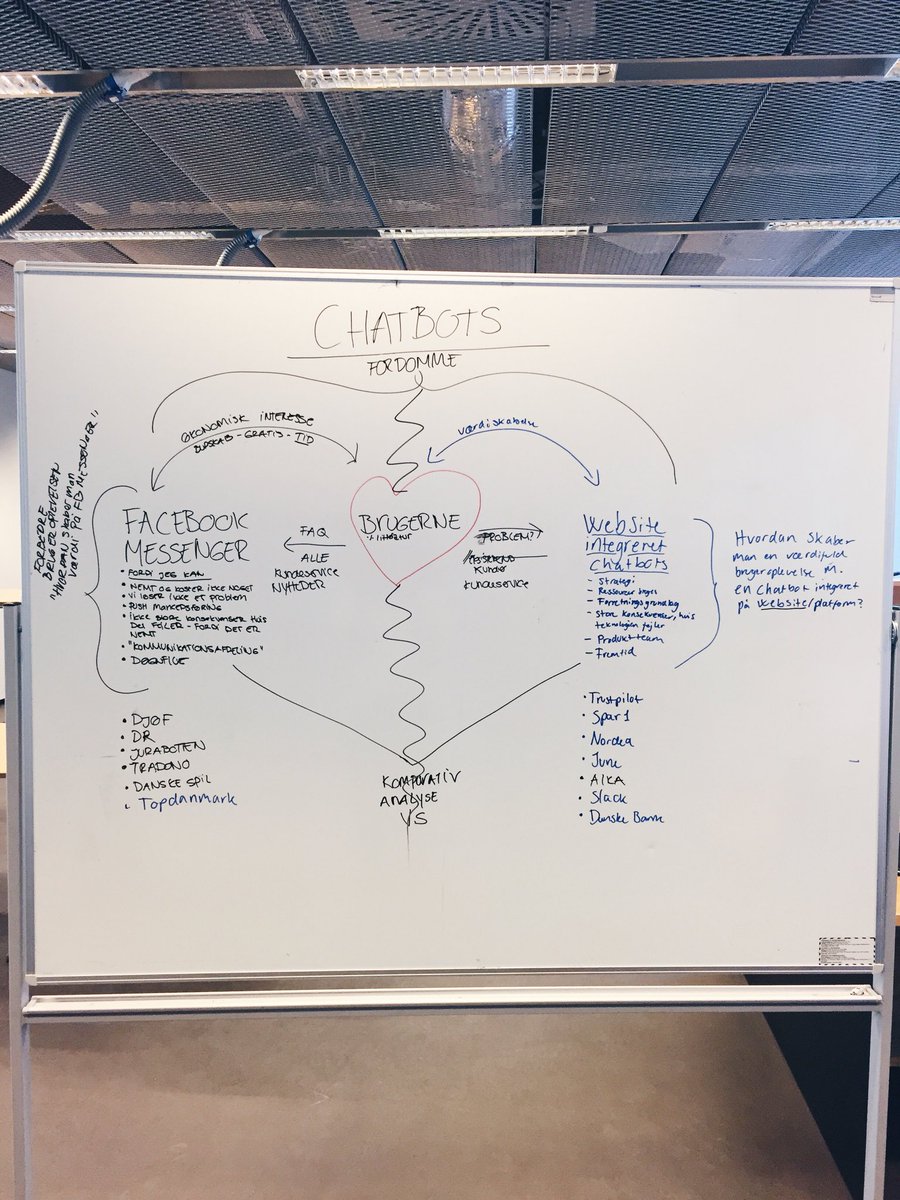 CHATBOTS
FORDOMME
ØKONOMISK INTERESSE
BUDSKAB - GRATIS - TID
værdiskabelse
FORBEDRE
BRUGEROPLEVELSEN
"HVORDAN skaber man
værdi på FB MESSENGER"
FACEBOOK
MESSENGER
• FORDI JEG KAN
• NEMT OG KOSTER IKKE NOGET
• Vi løser ikke et problem
• PUSH MARKEDSFØRING
• IKKE STORE KONSEKVENSER HVIS
DET FEJLER - FORDI DET ER
NEMT
• "KOMMUNIKATIONSAFDELING"
• DØGNFLUE
FAQ
ALLE
kundeservice
NYHEDER
BRUGERNE
PROBLEM??
kunder
kundeservice
Website
integreret
chatbots
- Strategi
- Forretningsgrundlag
- Store konsekvenser, hvis
teknologien fejler
- Produktteam
- Fremtid
Hvordan skaber
man en værdifuld
brugeroplevelse m.
en Chatbot integreret
på website/platform?
• DJØF
• DR
• JURABOTTEN
• TRADONO
• DANSKE SPIL
• Topdanmark
KOMPARATIV
ANALYSE
VS
• Trustpilot
• Spar1
• Nordea
• June
• ALKA
• Slack
• Danske Bank